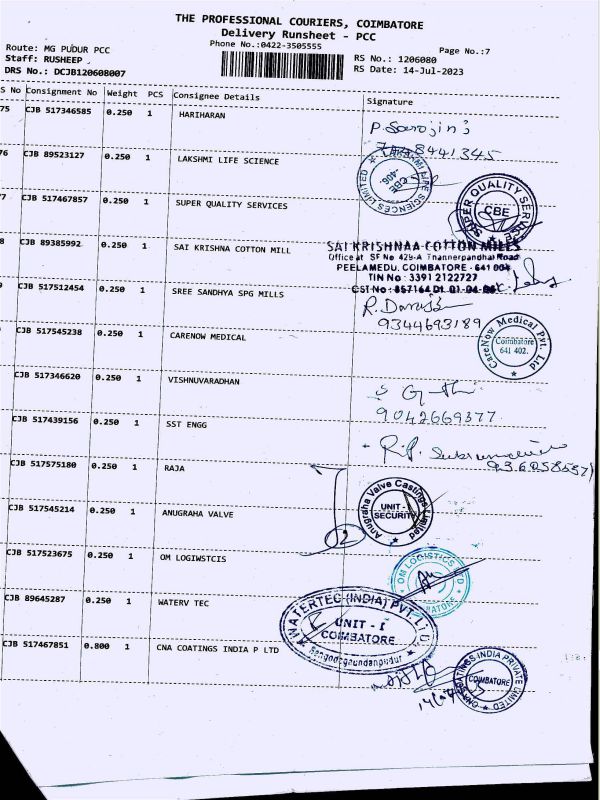 THE PROFESSIONAL COURIERS, COIMBATORE
Delivery Runsheet - PCC
Phone No.:0422-3505555
Page No.:7
Route: MG PUDUR PCC
Staff: RUSHEEP
DRS No.: DCJB120608007
RS No.: 1206080
RS Date: 14-Jul-2023
S No Consignment No Weight PCS Consignee Details Signature
75 CJB 517346585 0.250 1 HARIHARAN
P. Sarojini
8441345
76 CJB 89523127 0.250 1 LAKSHMI LIFE SCIENCE
LAKSHMI LIFE SCIENCES LIMITED
CBE
7 CJB 517467857 0.250 1 SUPER QUALITY SERVICES
SUPER QUALITY SERVICES
CBE
8 CJB 89385992 0.250 1 SAI KRISHNA COTTON MILL
SAI KRISHNAA COTTON MILLS
Office at SF No 429-A Thannerpandhal Road
PEELAMEDU. COIMBATORE - 641 004
TIN No : 3391 2122727
CST No : 857164 Dt. 01-04-96
9 CJB 517512454 0.250 1 SREE SANDHYA SPG MILLS
9344693189
0 CJB 517545238 0.250 1 CARENOW MEDICAL
CareNow Medical Pvt. Ltd
Coimbatore
641 402.
CJB 517346620 0.250 1 VISHNUVARADHAN
9042669377
CJB 517439156 0.250 1 SST ENGG
CJB 517575180 0.250 1 RAJA
CJB 517545214 0.250 1 ANUGRAHA VALVE
Anugraha Valve Castings Limited
UNIT -
SECURITY
CJB 517523675 0.250 1 OM LOGIWSTCIS
OM LOGISTICS LTD
CJB 89645287 0.250 1 WATERV TEC
WATERTEC (INDIA) PVT. LTD.
UNIT - I
COIMBATORE
CJB 517467851 0.800 1 CNA COATINGS INDIA P LTD
CNA COATINGS INDIA PRIVATE LIMITED
COIMBATORE